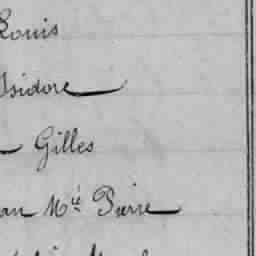 Louis
Isidore
Gilles
an Mie Pierre